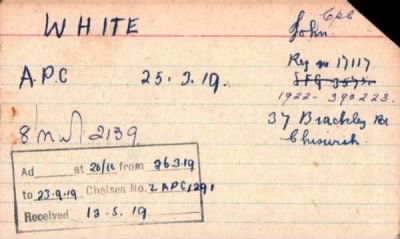 WHITE
Cpl
John.
Reg no 17117
A.P.C 25.3.19.
1922- 390223.
2139
37 Brackley Rd
Chiswick
Ad at 20/16 from 26.3.19
to 23.9.19 Chelsea No. 2 APC/291
Received 13.5.19